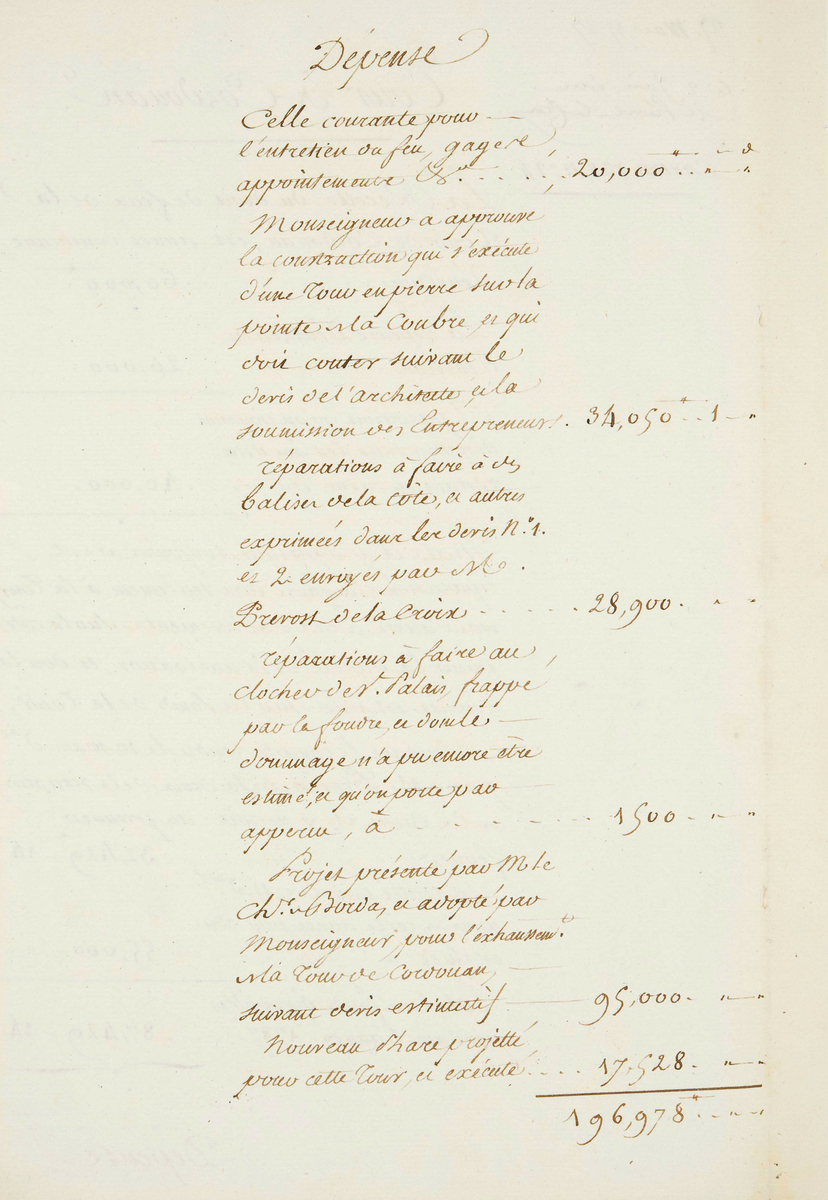 Dépense
Celle courante pour
l'entretien du feu, gages,
appointements &ca. . . . . . 20,000 tt . . " . . " d
Monseigneur a approuvé
la construction qui s'exécute
d'une Tour en pierre sur la
pointe de la Coubre, et qui
doit couter suivant le
devis de l'architecte et la
soumission des Entrepreneurs. 34,050 tt . . 1 — "
réparations à faire à des
balises de la côte, et autres
exprimées dans les devis N.o 1.
et 2 envoyés par M.
Prevost de la Croix . . . . . 28,900. " — "
réparations à faire au
clocher de St. Palais, frappé
par la foudre, et dont le
dommage n'a pu encore être
estimé, et qu'on porte par
apperçu, à . . . . . . . 1500 . " — "
Projet présenté par M. le
Chr. de Borda, et adopté par
Monseigneur, pour l'exhaussemt.
de la Tour de Cordouan,
suivant devis estimatif — 95,000. " — "
Nouveau Phare projetté
pour cette Tour, et exécuté . . . 17,528. " — "
196,978 tt . . " — "